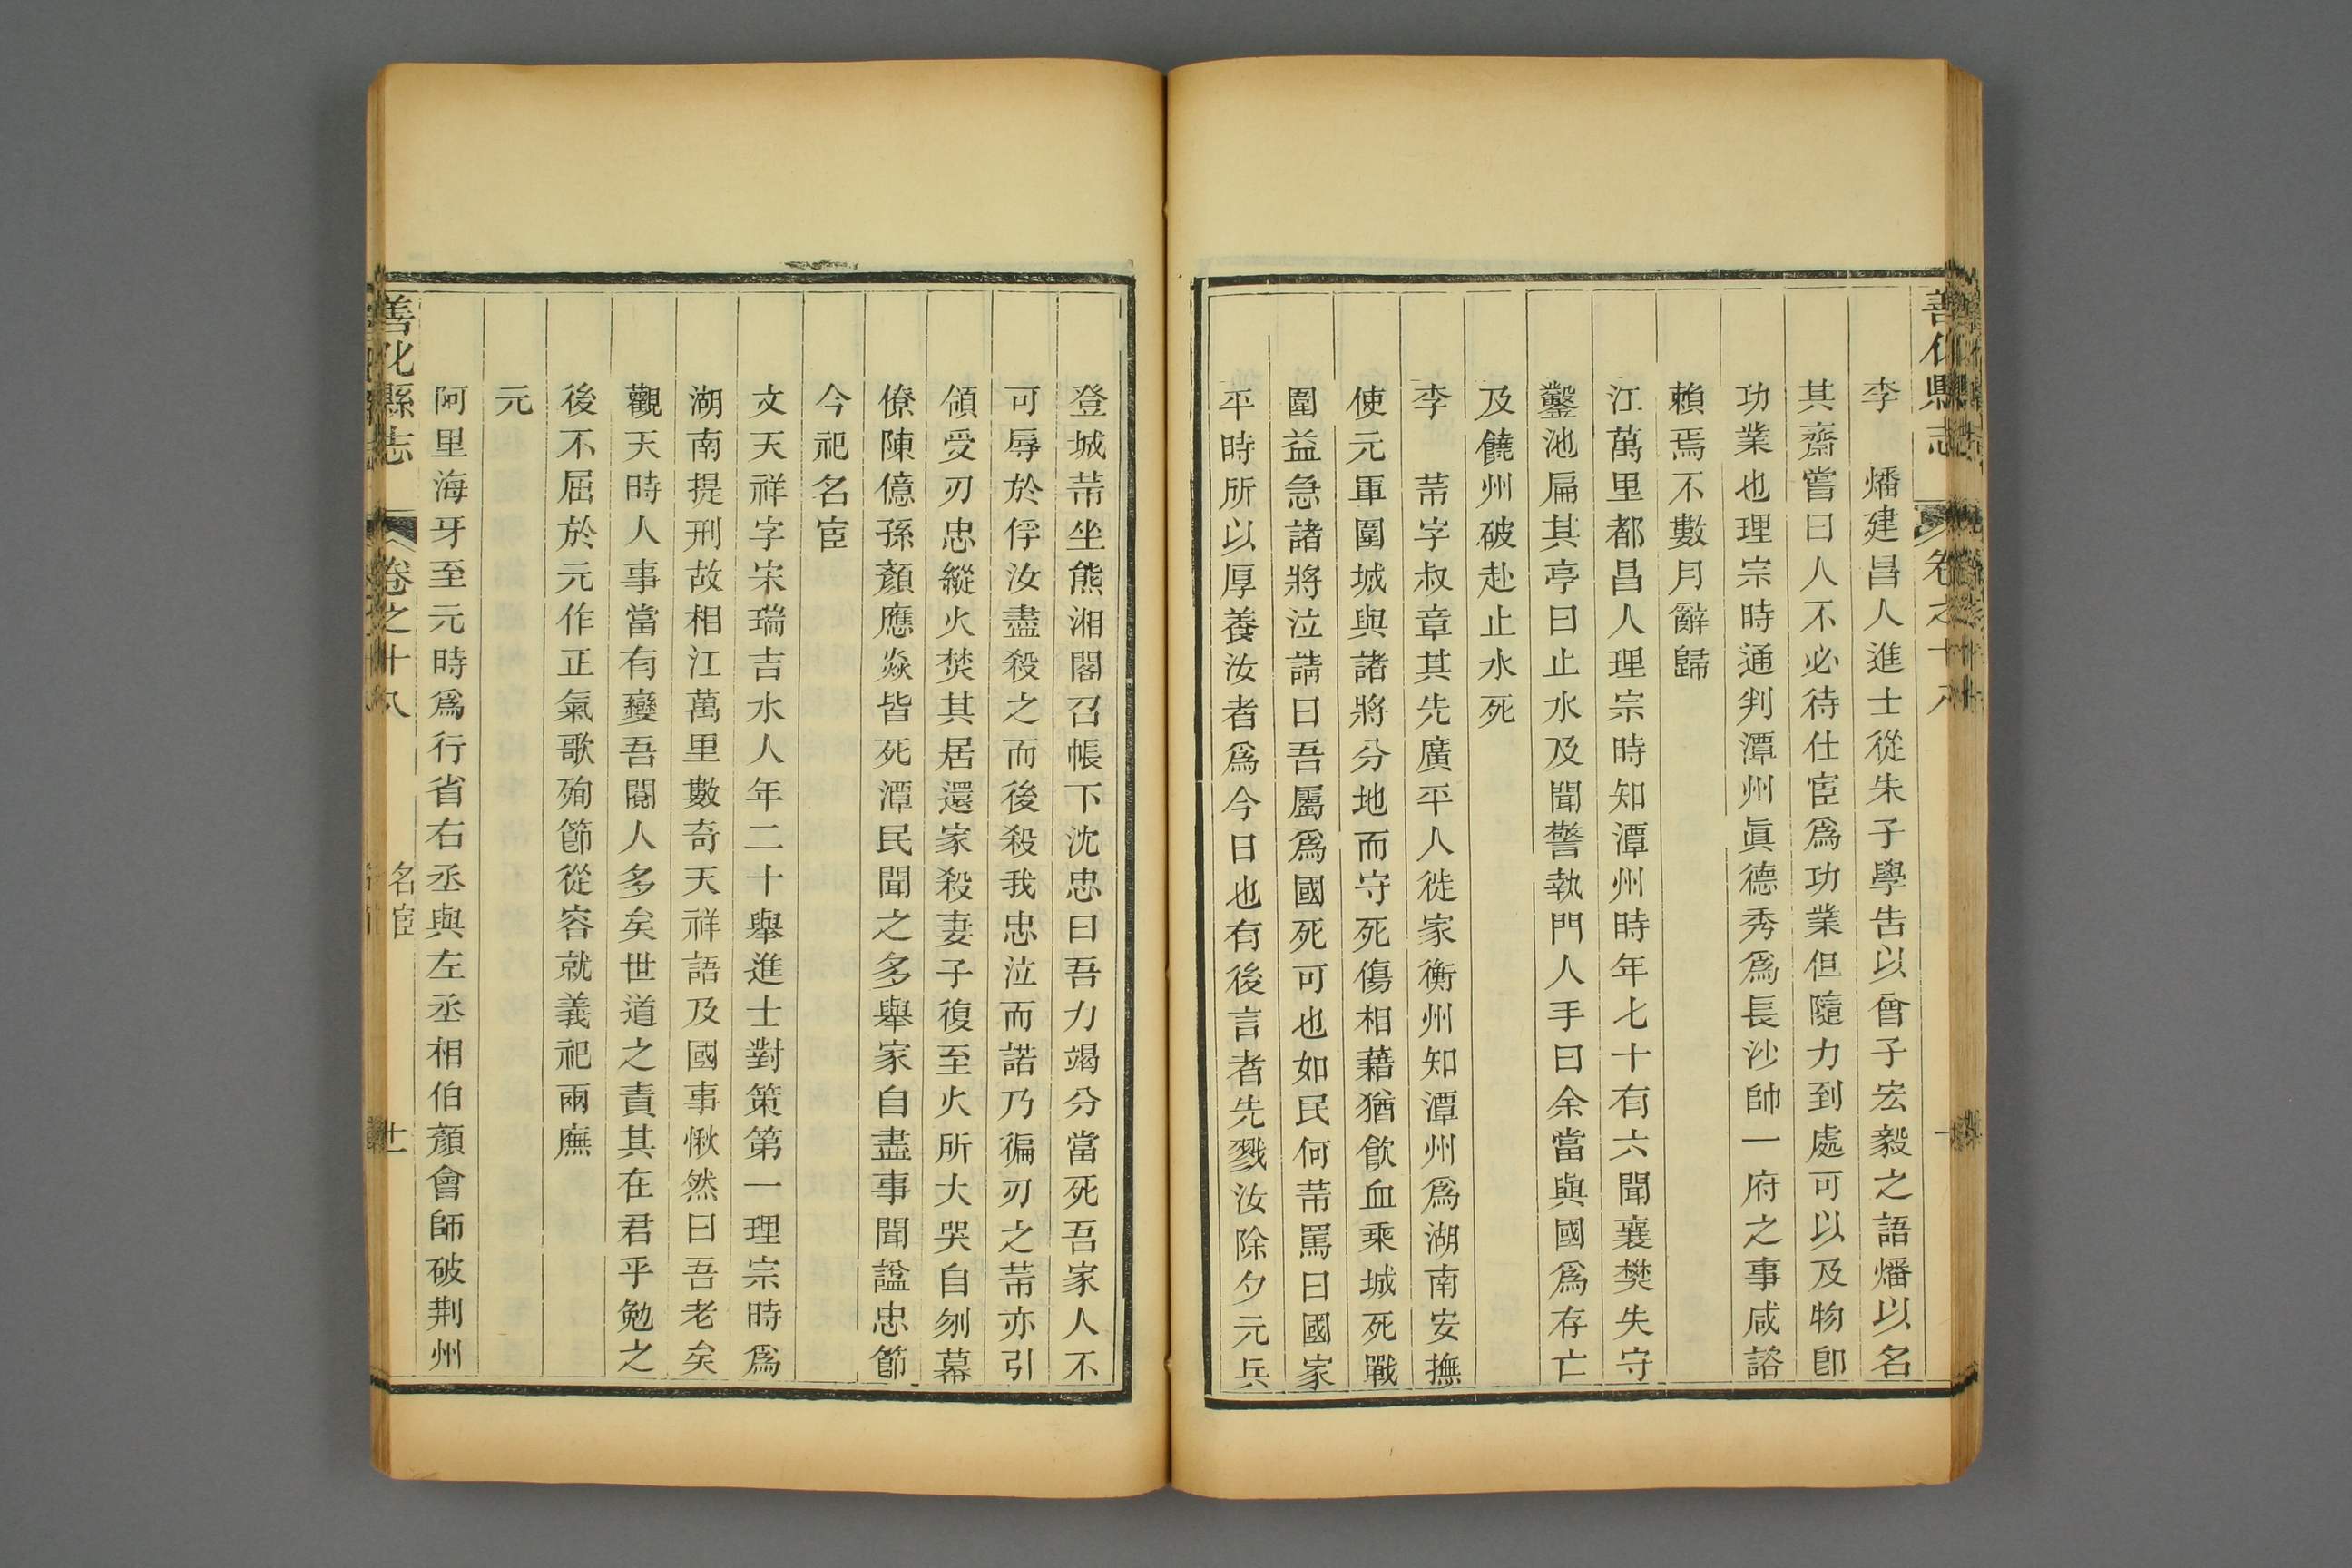 善化縣志 卷之十八
李 燔建昌人進士從朱子學告以曾子宏毅之語燔以名
其齋嘗曰人不必待仕宦爲功業但隨力到處可以及物卽
功業也理宗時通判潭州眞德秀爲長沙帥一府之事咸諮
賴焉不數月辭歸
江萬里都昌人理宗時知潭州時年七十有六聞襄樊失守
鑿池扁其亭曰止水及聞警執門人手曰余當與國爲存亡
及饒州破赴止水死
李 芾字叔章其先廣平人徙家衡州知潭州爲湖南安撫
使元軍圍城與諸將分地而守死傷相藉猶飮血乘城死戰
圍益急諸將泣請曰吾屬爲國死可也如民何芾罵曰國家
平時所以厚養汝者爲今日也有後言者先戮汝除夕元兵
登城芾坐熊湘閣召帳下沈忠曰吾力竭分當死吾家人不
可辱於俘汝盡殺之而後殺我忠泣而諾乃徧刃之芾亦引
領受刃忠縱火焚其居還家殺妻子復至火所大哭自刎幕
僚陳億孫顏應焱皆死潭民聞之多舉家自盡事聞諡忠節
今祀名宦
文天祥字宋瑞吉水人年二十舉進士對策第一理宗時爲
湖南提刑故相江萬里數奇天祥語及國事愀然曰吾老矣
觀天時人事當有變吾閱人多矣世道之責其在君乎勉之
後不屈於元作正氣歌殉節從容就義祀兩廡
元
阿里海牙至元時爲行省右丞與左丞相伯顏會師破荆州
善化縣志 卷之十八 名宦 廿